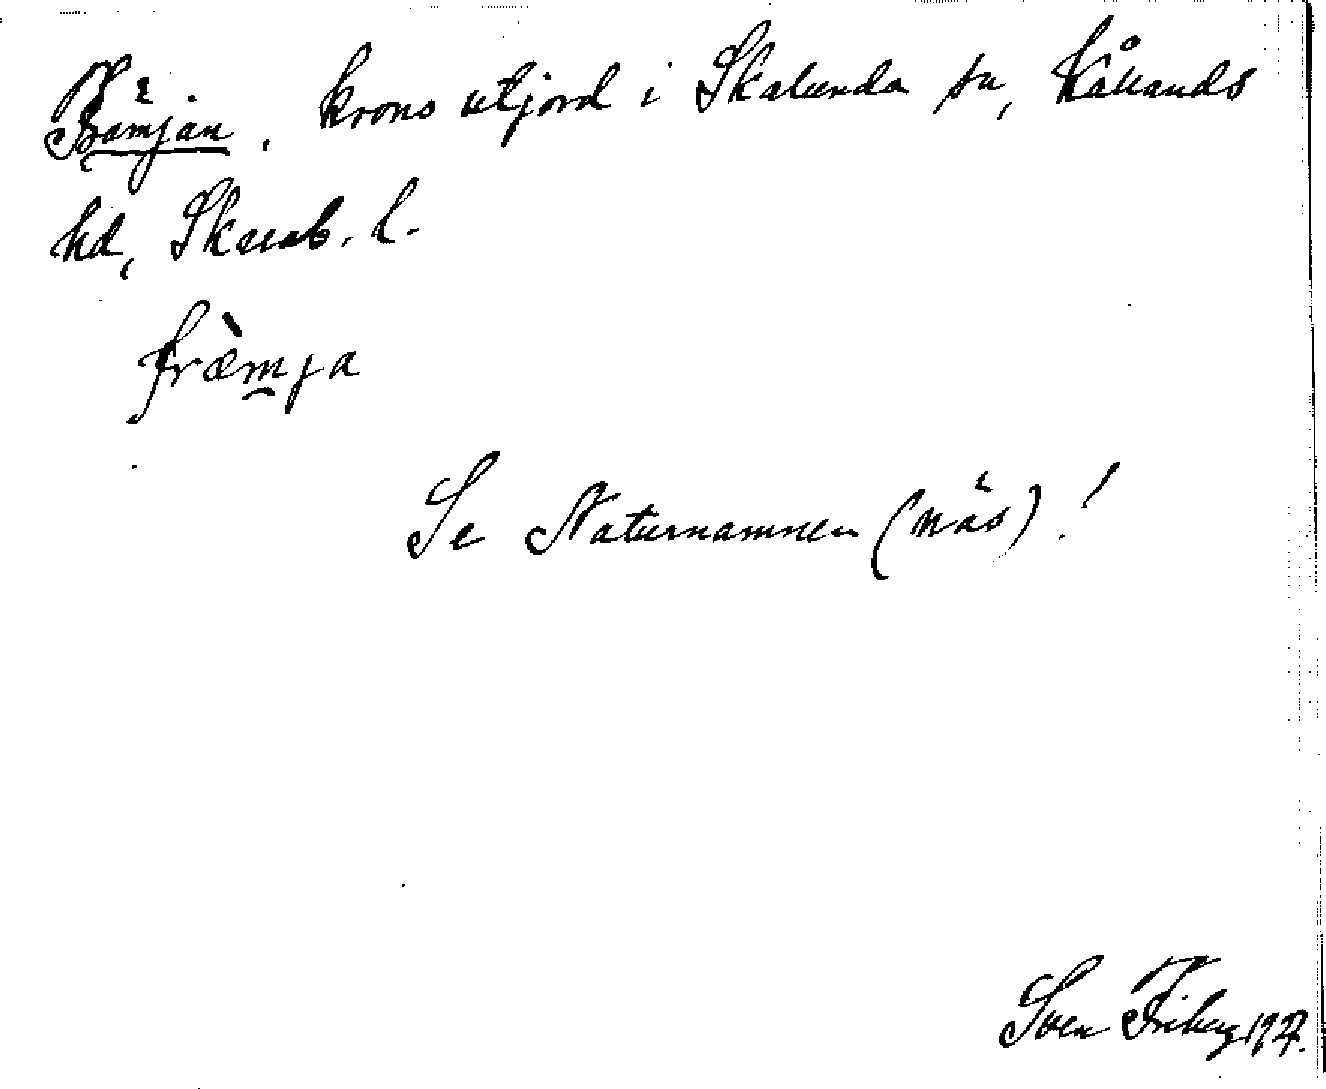 Främjan, krono utjord i Skalunda sn, Kållands
hd, Skarab. l.
fræ̀mja
Se Naturnamnen (näs)!
Sven Friberg 1927.